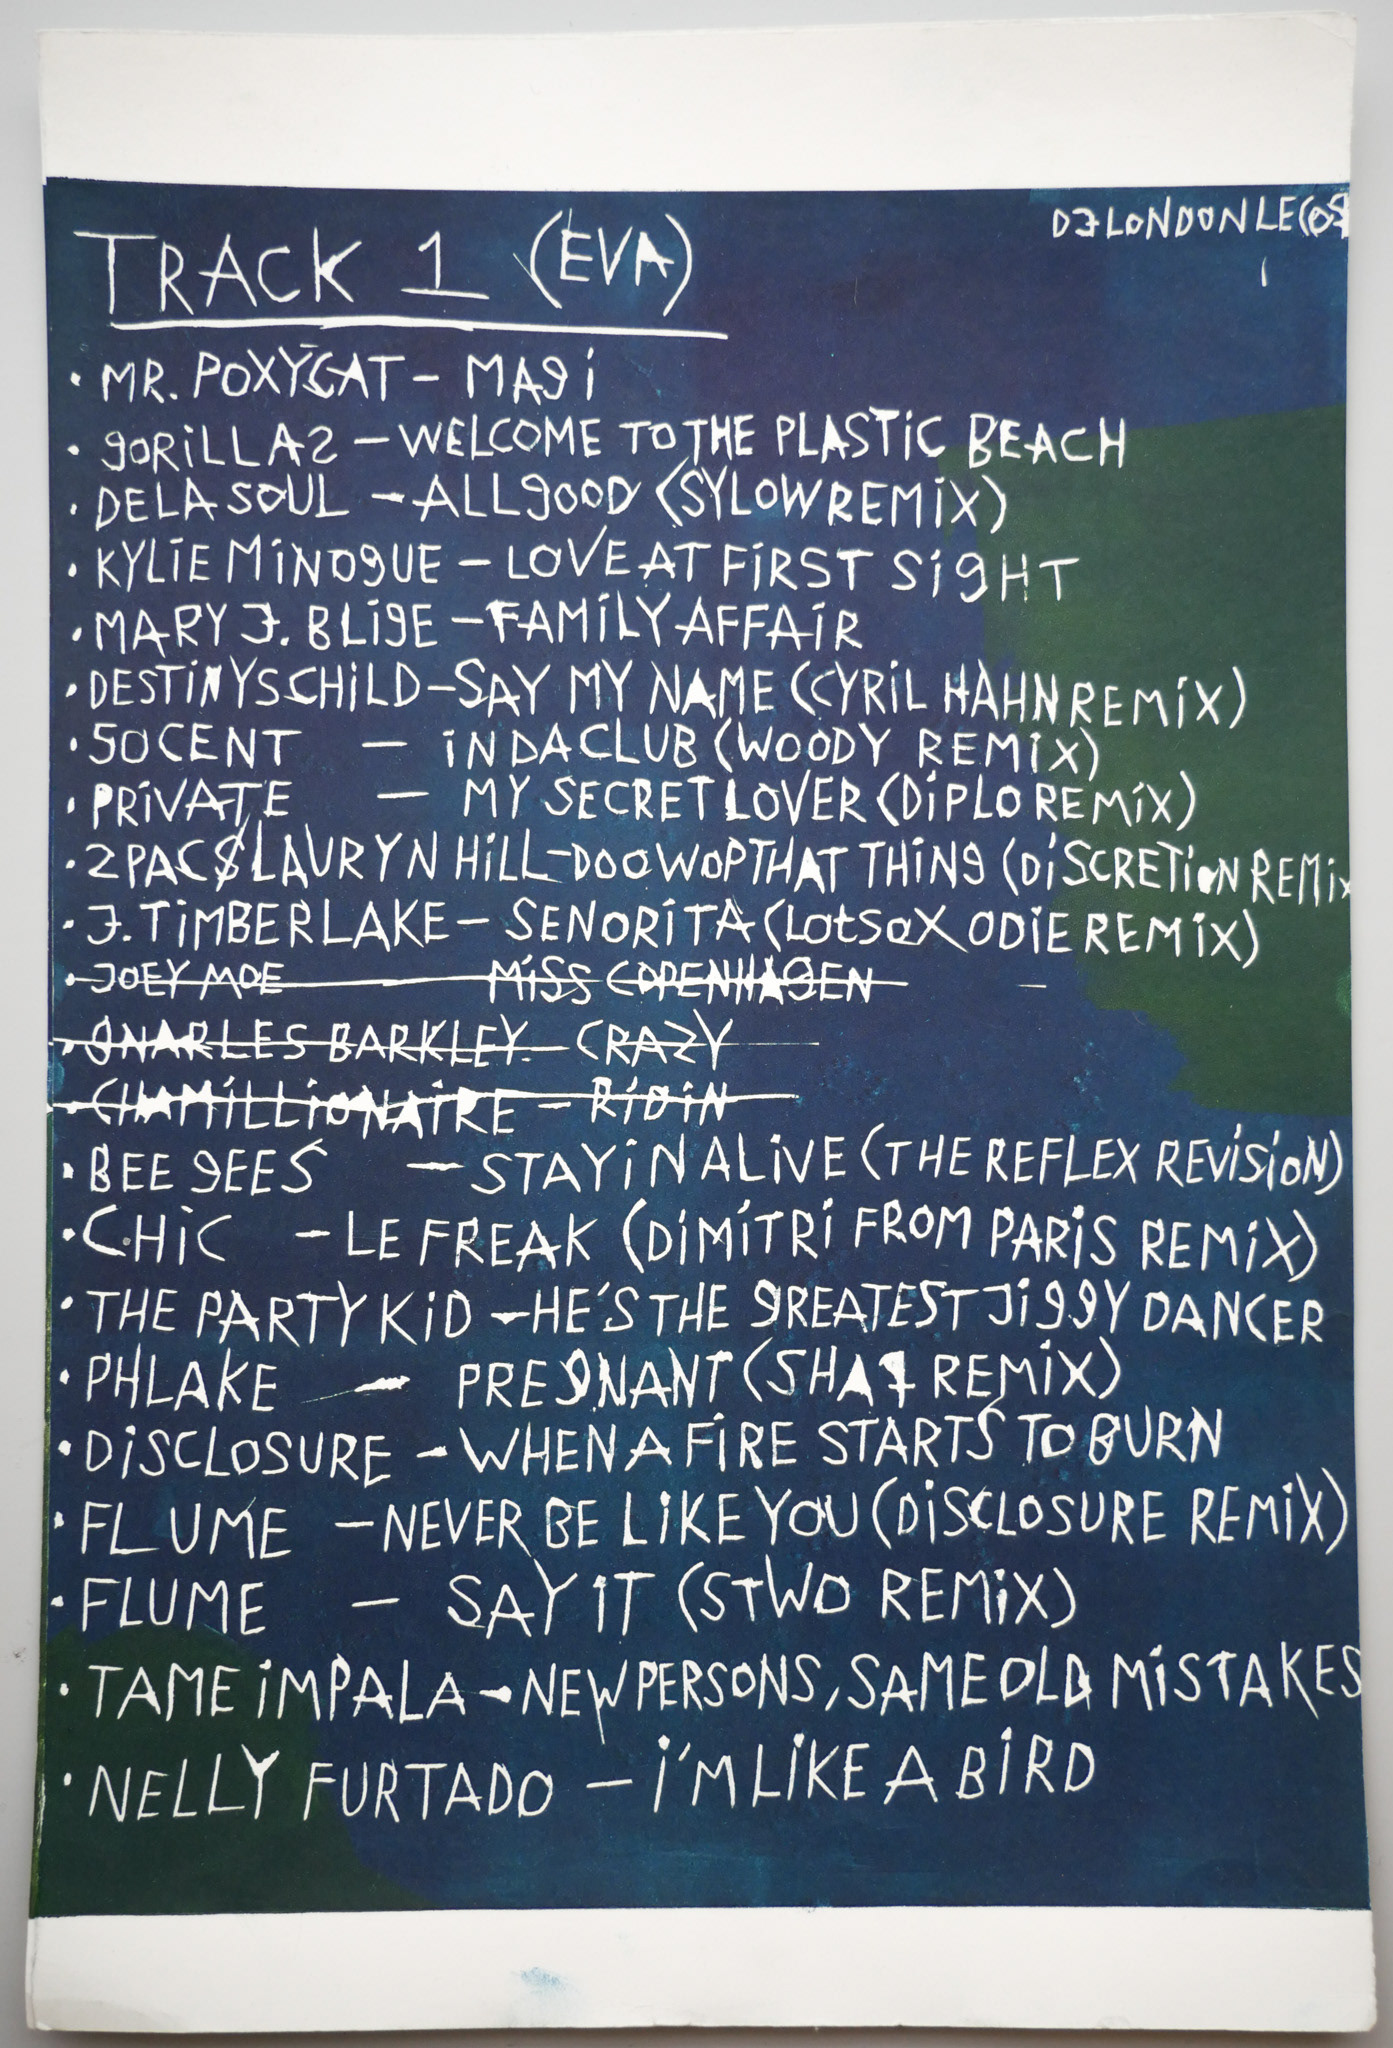 DJ LONDON LECOS
TRACK 1 (EVA)
• MR. POXYCAT - MAGI
• GORILLAZ - WELCOME TO THE PLASTIC BEACH
• DE LA SOUL - ALL GOOD (SYLOW REMIX)
• KYLIE MINOGUE - LOVE AT FIRST SIGHT
• MARY J. BLIGE - FAMILY AFFAIR
• DESTINYS CHILD - SAY MY NAME (CYRIL HAHN REMIX)
• 50 CENT - IN DA CLUB (WOODY REMIX)
• PRIVATE - MY SECRET LOVER (DIPLO REMIX)
• 2PAC & LAURYN HILL - DOO WOP THAT THING (DISCRETION REMIX
• J. TIMBERLAKE - SENORITA (LOTSAX ODIE REMIX)
• JOEY MOE MISS COPENHAGEN
• GNARLES BARKLEY - CRAZY
• CHAMILLIONAIRE - RIDIN
• BEE GEES - STAYIN ALIVE (THE REFLEX REVISION)
• CHIC - LE FREAK (DIMITRI FROM PARIS REMIX)
• THE PARTY KID - HE'S THE GREATEST JIGGY DANCER
• PHLAKE - PREGNANT (SHAQ REMIX)
• DISCLOSURE - WHEN A FIRE STARTS TO BURN
• FLUME - NEVER BE LIKE YOU (DISCLOSURE REMIX)
• FLUME - SAY IT (STWO REMIX)
• TAME IMPALA - NEW PERSONS, SAME OLD MISTAKES
• NELLY FURTADO - I'M LIKE A BIRD